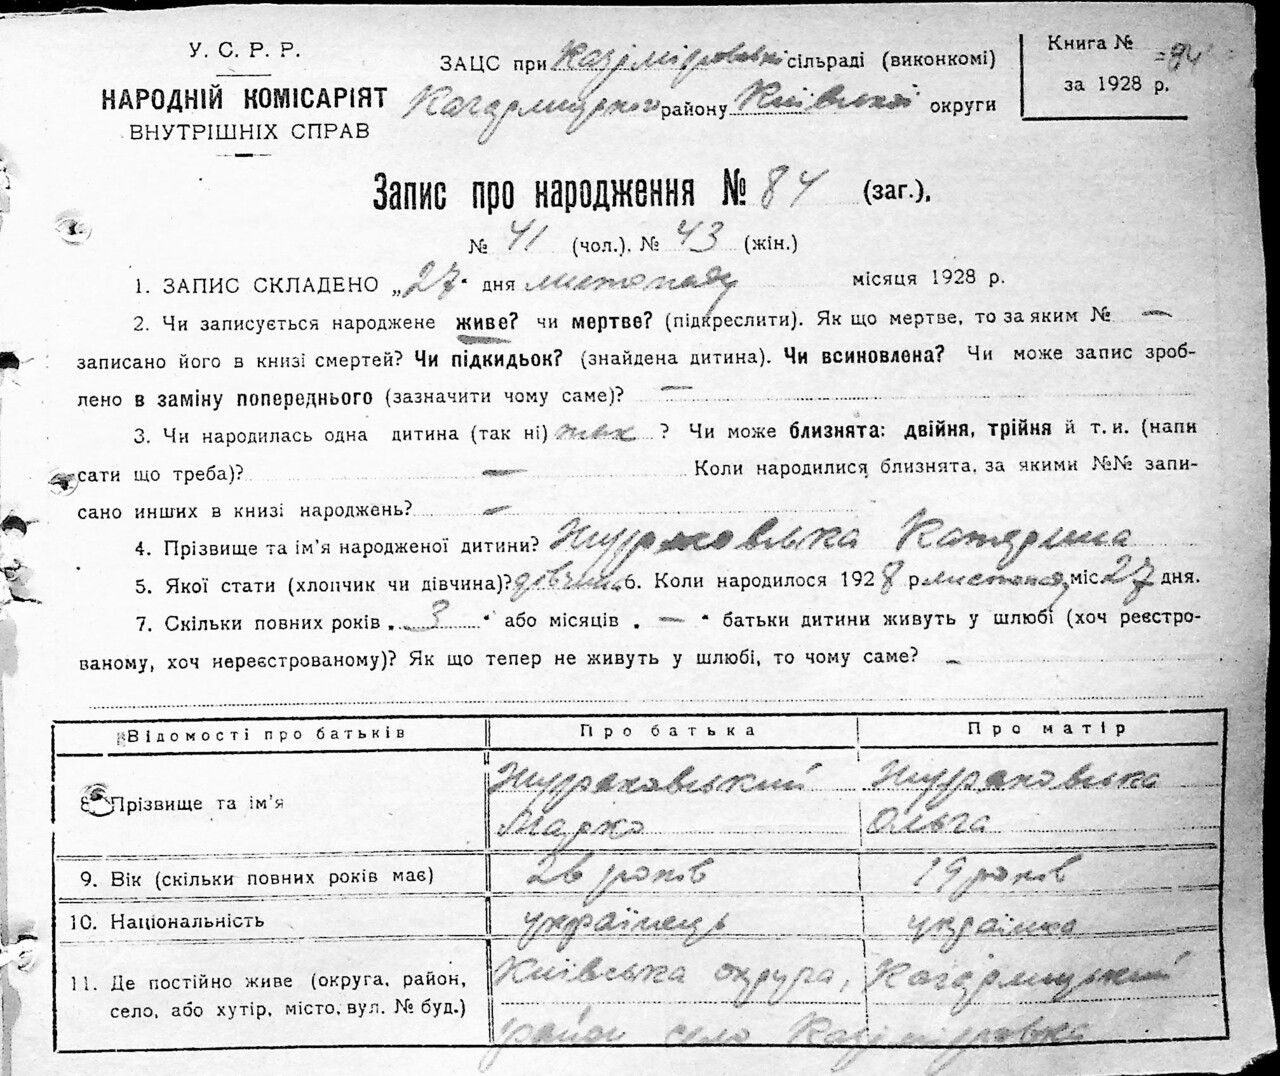 У. С. Р. Р.
НАРОДНІЙ КОМІСАРІЯТ
ВНУТРІШНІХ СПРАВ
ЗАЦС при Казіміровській сільраді (виконкомі)
Кагарлицького району Київської округи
Книга №
за 1928 р.
Запис про народження № 84 (заг.),
№ 41 (чол.), № 43 (жін.)
1. ЗАПИС СКЛАДЕНО „27" дня листопаду місяця 1928 р.
2. Чи записується народжене живе? чи мертве? (підкреслити). Як що мертве, то за яким № —
записано його в книзі смертей? Чи підкидьок? (знайдена дитина). Чи всиновлена? Чи може запис зроб-
лено в заміну попереднього (зазначити чому саме)? —
3. Чи народилась одна дитина (так ні) так ? Чи може близнята: двійня, трійня й т. и. (напи
сати що треба)? — Коли народилися близнята, за якими №№ запи-
сано инших в книзі народжень? —
4. Прізвище та ім'я народженої дитини? Жураховська Катерина
5. Якої стати (хлопчик чи дівчина)? дівчина 6. Коли народилося 1928 р листопад міс 27 дня.
7. Скільки повних років „ 3 " або місяців „ — " батьки дитини живуть у шлюбі (хоч реєстро-
ваному, хоч нереєстрованому)? Як що тепер не живуть у шлюбі, то чому саме? —
Відомості про батьків Про батька Про матір
8. Прізвище та ім'я Жураховський Жураховська
Марко Ольга
9. Вік (скільки повних років має) 26 років 19 років
10. Національність українець українка
11. Де постійно живе (округа, район, Київська округа, Кагарлицький
село, або хутір, місто, вул. № буд.) район село Казіміровка